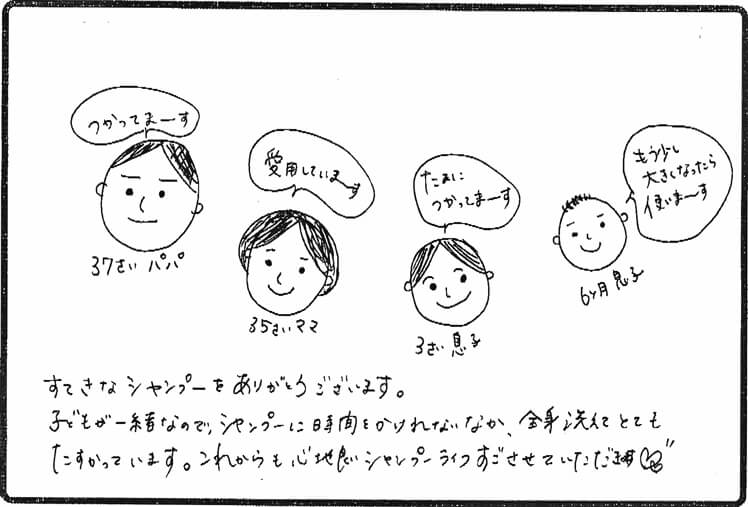 つかってまーす
愛用していま〜す
たまに
つかってまーす
もう少し
大きくなったら
使いま〜す
37さい パパ
35さいママ
3さい 息子
6ヶ月 息子
すてきなシャンプーをありがとうございます。
子どもが一緒なので、シャンプーに時間をかけれないなか、全身洗えてとても
たすかっています。これからも心地良いシャンプーライフすごさせていただきます